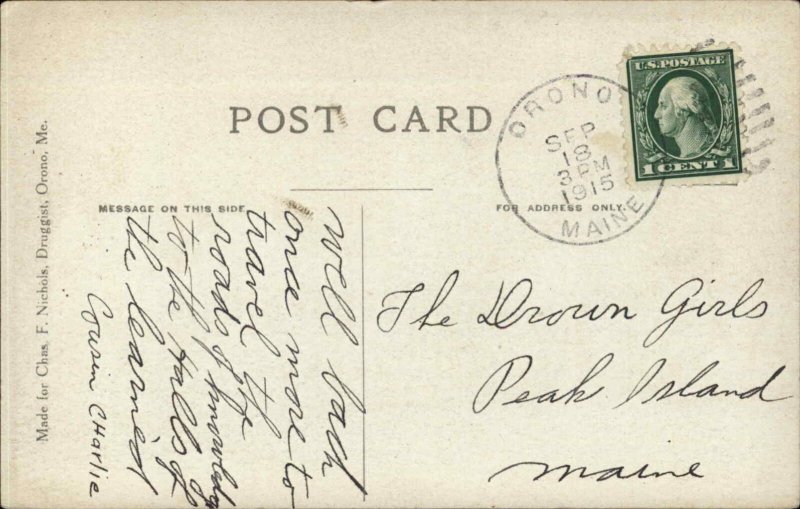 POST CARD
MESSAGE ON THIS SIDE
FOR ADDRESS ONLY
U.S. POSTAGE
1 CENT 1
ORONO
SEP
18
3 PM
1915
MAINE
Well back
once more to
travel the
roads of knowledge
to the Halls of
the learned
Cousin CHarlie
The Drown Girls
Peak Island
Maine
Made for Chas. F. Nichols, Druggist, Orono, Me.